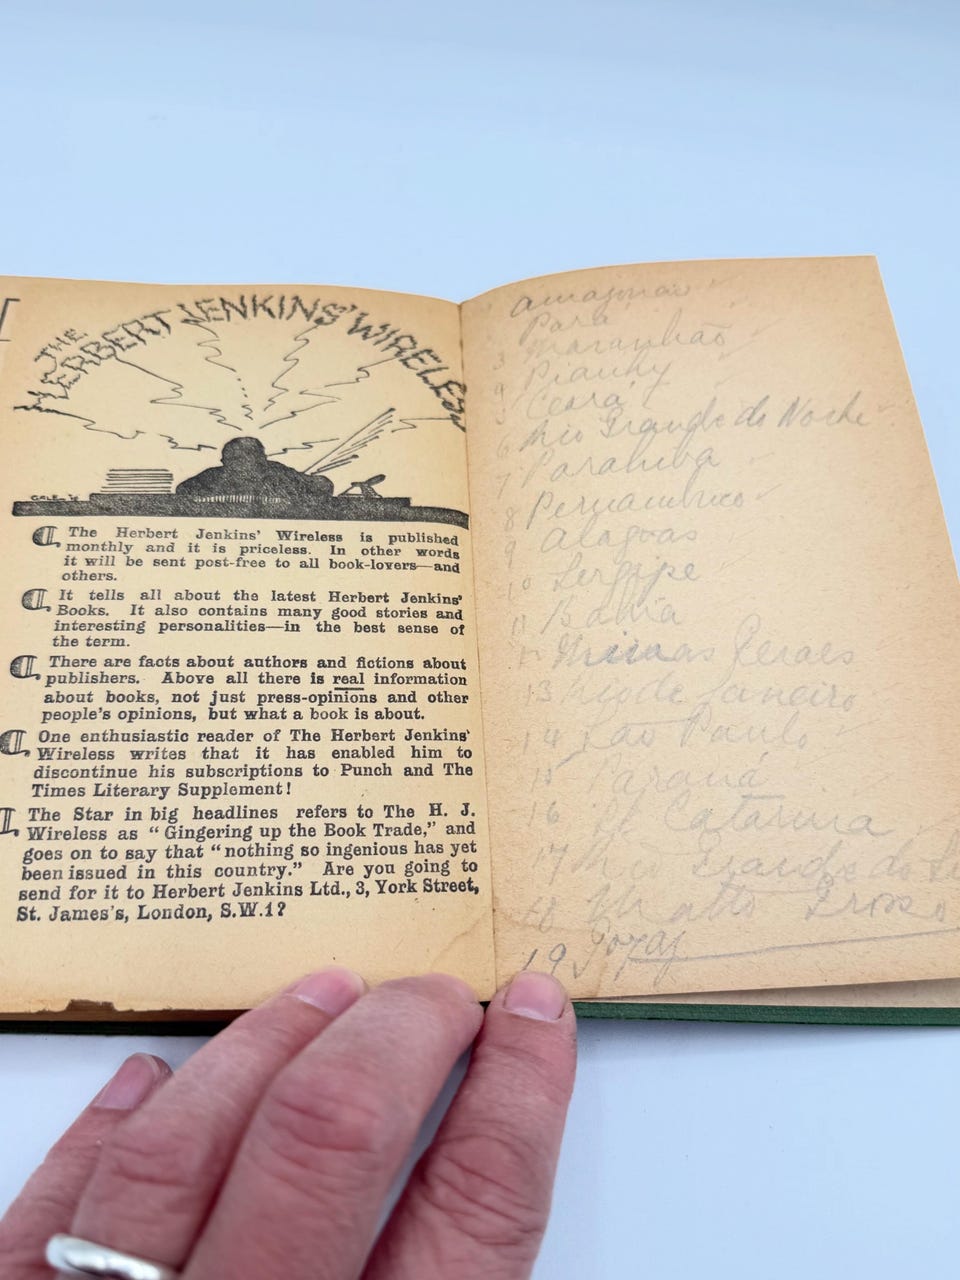 THE
HERBERT JENKINS' WIRELESS
GALE
The Herbert Jenkins' Wireless is published
monthly and it is priceless. In other words
it will be sent post-free to all book-lovers—and
others.
It tells all about the latest Herbert Jenkins'
Books. It also contains many good stories and
interesting personalities—in the best sense of
the term.
There are facts about authors and fictions about
publishers. Above all there is real information
about books, not just press-opinions and other
people's opinions, but what a book is about.
One enthusiastic reader of The Herbert Jenkins'
Wireless writes that it has enabled him to
discontinue his subscriptions to Punch and The
Times Literary Supplement!
The Star in big headlines refers to The H. J.
Wireless as "Gingering up the Book Trade," and
goes on to say that "nothing so ingenious has yet
been issued in this country." Are you going to
send for it to Herbert Jenkins Ltd., 3, York Street,
St. James's, London, S.W.1?
Amazonas
Pará
3 Maranhão
4 Piauhy
5 Ceará
6 Rio Grande do Norte
7 Parahiba
8 Pernambuco
9 Alagoas
10 Sergipe
11 Bahia
12 Minas Geraes
13 Rio de Janeiro
14 São Paulo
15 Paraná
16 St Catarina
17 Rio Grande do
18 Matto Grosso
19 Goyaz